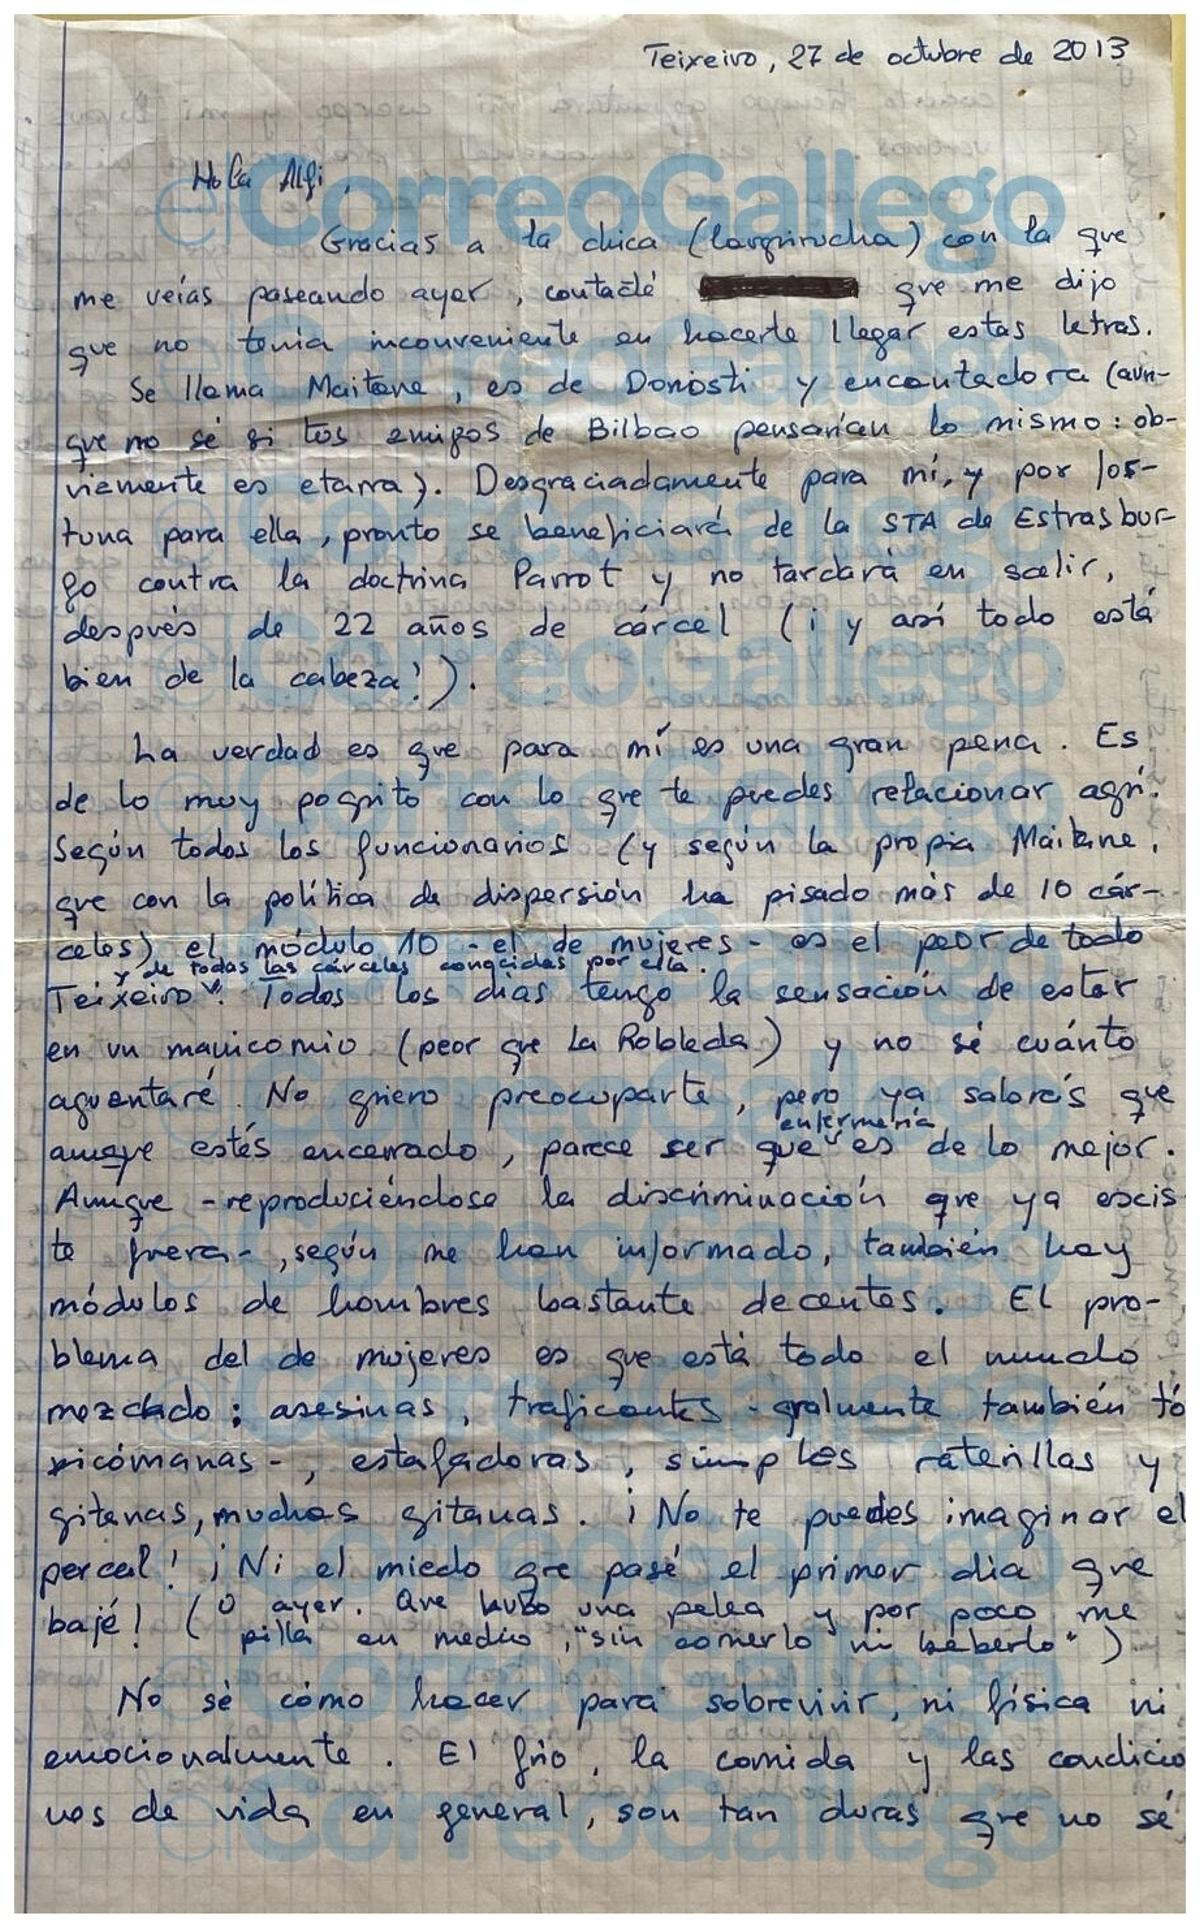 Teixeiro, 27 de octubre de 2013
Hola Alfi,
Gracias a la chica (larguirucha) con la que
me veías paseando ayer, contacté que me dijo
que no tenía inconveniente en hacerte llegar estas letras.
Se llama Maitane, es de Donosti y encantadora (aun-
que no sé si tus amigos de Bilbao pensarían lo mismo: ob-
viamente es etarra). Desgraciadamente para mí, y por for-
tuna para ella, pronto se beneficiará de la STA de Estrasbur-
go contra la doctrina Parrot y no tardará en salir,
después de 22 años de cárcel (¡y así todo está
bien de la cabeza!).
La verdad es que para mí es una gran pena. Es
de lo muy poquito con lo que te puedes relacionar aquí.
Según todos los funcionarios (y según la propia Maitane,
que con la política de dispersión ha pisado más de 10 cár-
celes) el módulo 10 - el de mujeres - es el peor de todo
y de todas las cárceles conocidas por ella.
Teixeiro. Todos los días tengo la sensación de estar
en un manicomio (peor que La Robleda) y no sé cuánto
aguantaré. No quiero preocuparte, pero ya sabrás que
enfermería
aunque estés encerrado, parece ser que es de lo mejor.
Aunque -reproduciéndose la discriminación que ya excis
te fuera-, según me han informado, también hay
módulos de hombres bastante decentes. El pro-
blema del de mujeres es que está todo el mundo
mezclado: asesinas, traficantes - gralmente también to
xicómanas-, estafadoras, simples raterillas y
gitanas, muchas gitanas. ¡No te puedes imaginar el
percal! ¡Ni el miedo que pasé el primer día que
bajé! (O ayer. Que hubo una pelea y por poco me
pilla en medio, "sin comerlo ni beberlo")
No sé cómo hacer para sobrevivir, ni física ni
emocionalmente. El frío, la comida y las condicio
nes de vida en general, son tan duras que no sé
CorreoGallego